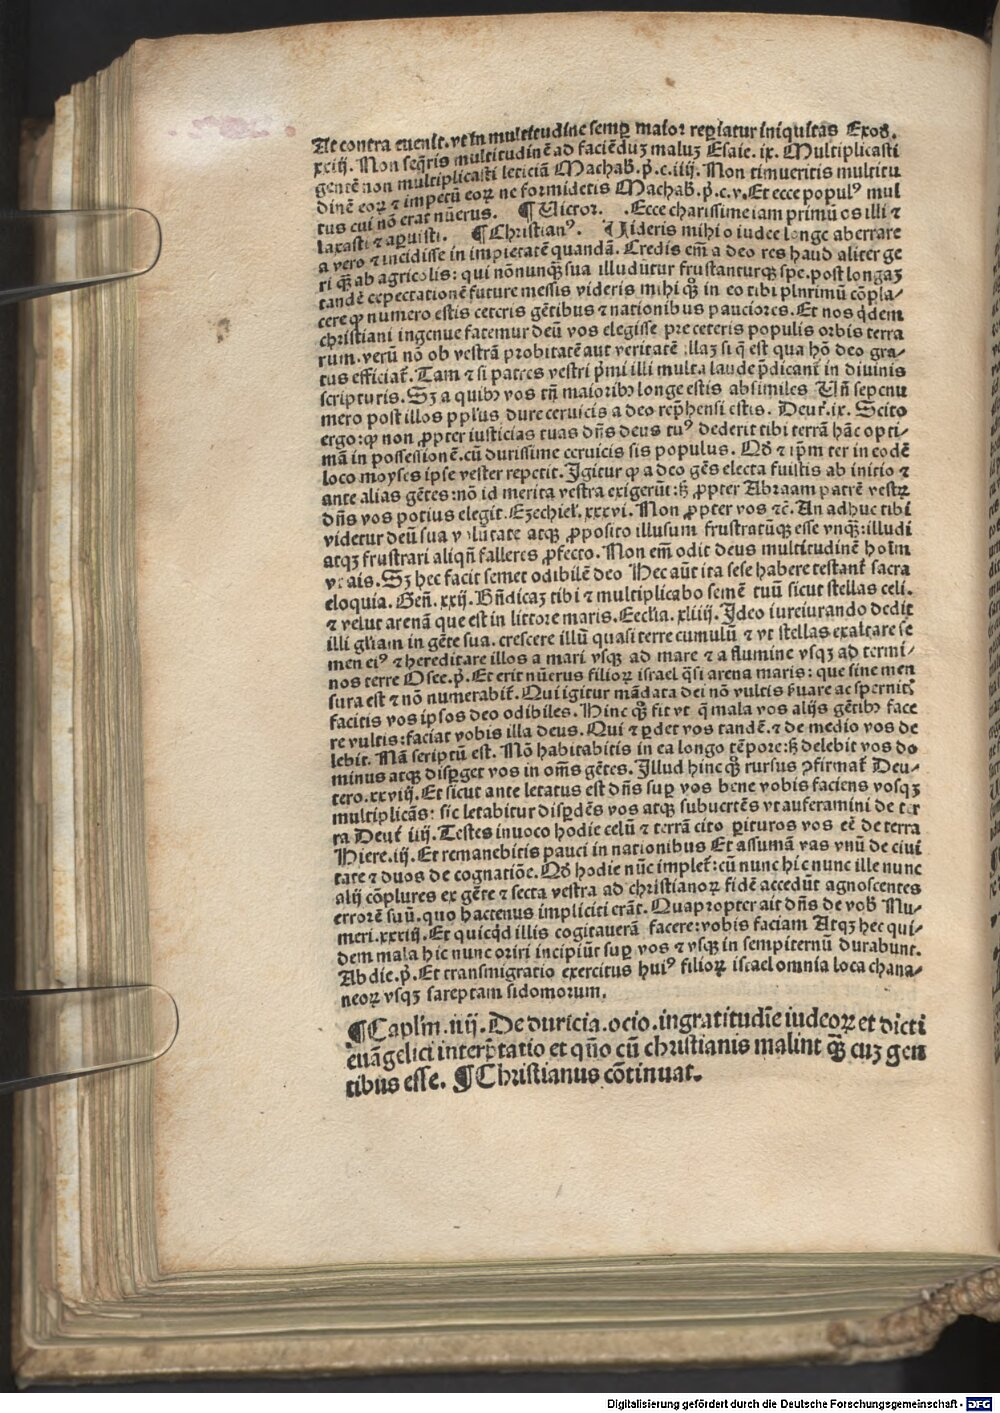 At contra euenit. vt in multitudine semp̲ maior rep̲iatur iniquitas Exoḋ.
xxiij. Non seq̄ris multitudinē ad faciēduȝ maluȝ Esaie. ix. Multiplicasti
gentē non multiplicasti leticiā Machab̄. p̄.c.iiij. Non timueritis multitu
dinē eoꝝ ⁊ impetū eoꝝ ne formidetis Machab̄. p̄.c.v. Et ecce populꝰ mul
tus cui nō erat nūerus. ¶ Victor. .Ecce charissime iam primū os illi ⁊
laxasti ⁊ ap̲uisti. ¶ Christianꝰ. Uideris mihi o iudee longe aberrare
a vero ⁊ incidisse in impietatē quandā. Credis em̄ a deo res haud aliter ge
ri q̄ȝ ab agricolis: qui nōnunq̄ȝ sua illudūtur frustanturqȝ spe. post longaȝ
tandē expectationē future messis videris mihi qꝫ in eo tibi plnrimū cōpla⸗
cere ꝙ numero estis ceteris gētibus ⁊ nationibus pauciores. Et nos q̇dem
christiani ingenue fatemur deū vos elegisse pre ceteris populis orbis terra
rum. verū nō ob vestrā probitatē aut veritatē illaȝ si q̄ est qua hō deo gra⸗
tus efficiat̄. Tam ⁊ si patres vestri p̄mi illi multa laude p̄dicant̄ in diuinis
scripturis. Sȝ a quibꝫ vos tn̄ maioribꝫ longe estis absimiles Un̄ sepenu
mero post illos pp̄lus dure ceruicis a deo rep̄hensi estis. Deut̄. ix. Scito
ergo: ꝙ non ꝓpter iusticias tuas dn̄s deus tuꝰ dederit tibi terrā hāc opti⸗
mā in possessionē. cū durissime ceruicis sis populus. Qḋ ⁊ ip̄m ter in eodē
loco moyses ipse vester repetit. Igitur ꝙ a deo gēs electa fuistis ab initio ⁊
ante alias gētes: nō id merita vestra exigerūt: sꝫ ꝓpter Abraam patrē vestrꝝ
dn̄s vos potius elegit. Ezechiel̄. xxxvi. Non ꝓpter vos ⁊c̄. An adhuc tibi
videtur deū sua volūtate atqȝ ꝓposito illusum frustratūqȝ esse vnqȝ: illudi
atqȝ frustrari aliqn̄ falleris ꝓfecto. Non em̄ odit deus multitudinē hoīm
sacra
eloquia. Gen̄. xxij. Bn̄dicaȝ tibi ⁊ multiplicabo semē tuū sicut stellas celi.
⁊ velut arenā que est in littore maris. Eccl̄ia. xliiij. Ideo iureiurando dedit
illi gl̄iam in gēte sua. crescere illū quasi terre cumulū ⁊ vt stellas exaltare se
men eiꝰ ⁊ hereditare illos a mari vsqȝ ad mare ⁊ a flumine vsqȝ ad termi⸗
nos terre Osee. p̄. Et erit nūerus filioꝝ israel q̄si arena maris: que sine men
sura est ⁊ nō numerabit̄. Qui igitur mādata dei nō vultis ẜuare ac spernitꝭ
facitis vos ipsos deo odibiles. Hinc qꝫ fit vt q̄ mala vos alijs gētibꝫ face
re vultis: faciat vobis illa deus. Qui ⁊ p̲det vos tandē. ⁊ de medio vos de
lebit. Nā scriptū est. Nō habitabitis in ea longo tēpore: sꝫ delebit vos do
minus atqȝ disp̲get vos in om̄s gētes. Illud hinc qꝫ rursus ꝯfirmat̄ Deu⸗
tero. xxviij. Et sicut ante letatus est dn̄s sup̲ vos bene vobis faciens vosqȝ
multiplicās: sic letabitur disp̲dēs vos atqȝ subuertēs vt auferamini de ter
ra Deut̄ iiij. Testes inuoco hodie celū ⁊ terrā cito p̲ituros vos eē de terra
Hiere. iij. Et remanebitis pauci in nationibus Et assumā vas vnū de ciui
tate ⁊ duos de cognatiōe. Qḋ hodie nūc implet̄: cū nunc hic nunc ille nunc
alij cōplures ex gēte ⁊ secta vestra ad christianoꝝ fidē accedūt agnoscentes
errorē suū. quo hactenus impliciti erāt. Quapropter ait dn̄s de vob̄ Nu⸗
meri. xxxiij. Et quicq̇d illis cogitauerā facere: vobis faciam Atqȝ hec qui⸗
dem mala hic nunc oriri incipiūt sup̲ vos ⁊ vsqȝ in sempiternū durabunt.
Abdie. p̄. Et transmigratio exercitus huiꝰ filioꝝ israel omnia loca chana⸗
neoꝝ vsqȝ sareptam sidomorum.
¶Capl̄m. iiij. De duricia. ocio. ingratitudīe iudeoꝝ et dicti
euāgelici interp̄tatio et quō cū christianis malint q̄ȝ cuȝ gen
tibus esse. ¶Christianus cōtinuat.
Digitalisierung gefördert durch die Deutsche Forschungsgemeinschaft - DFG